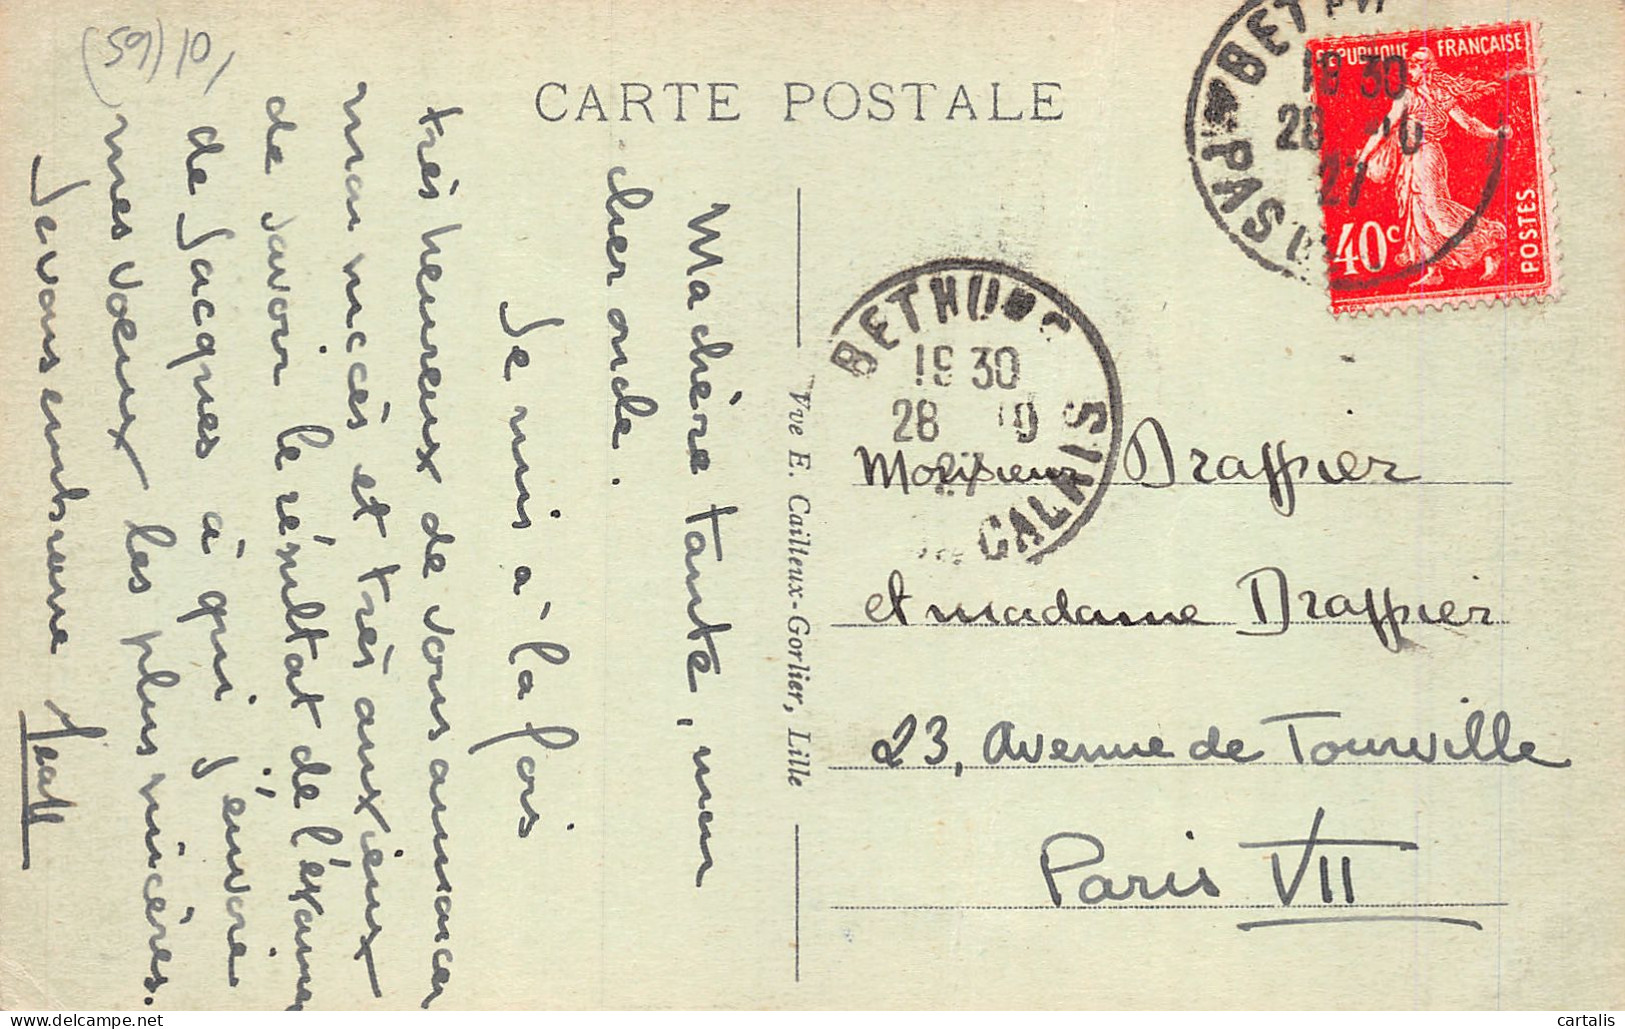 (59) 10/
CARTE POSTALE
Ma chère tante, mon
cher oncle.
Je suis à la fois
très heureux de vous annoncer
mon succès et très anxieux
de savoir le résultat de l'examen
de Jacques à qui j'envoie
mes voeux les plus sincères.
Je vous embrasse
Jean
Vve E. Cailleux-Gorlier, Lille
REPUBLIQUE FRANÇAISE
40c
POSTES
BETHUNE
19 30
28 10
27
PAS
BETHUNE
19 30
28 10
CALAIS
Monsieur Drappier
et madame Drappier
23, Avenue de Tourville
Paris VII
cartalis